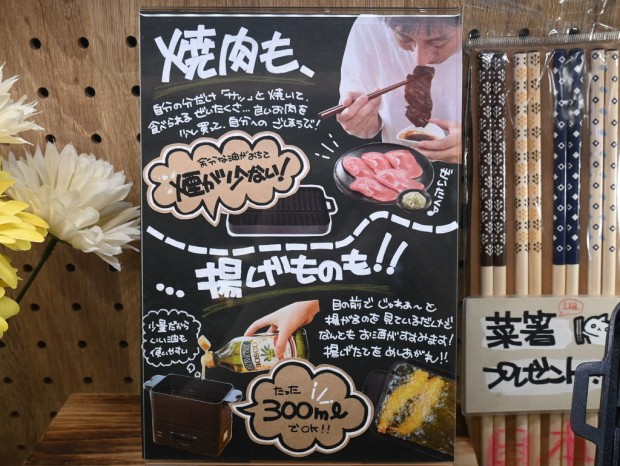 焼肉も、
自分の分だけ「サッ」と焼いて、
食べられるぜいたく…良いお肉を
少し買って、自分へのごほうび!
余分な油がおちて
煙が少ない!
…揚げものも!!
目の前でじゅわぁ〜と
揚がるのを見ているだけで
なんともお酒がすすみます!
揚げたてをめしあがれ!!
少量だから
いい油も
使いやすい
たった
300ml
でOK!!
菜箸
日本